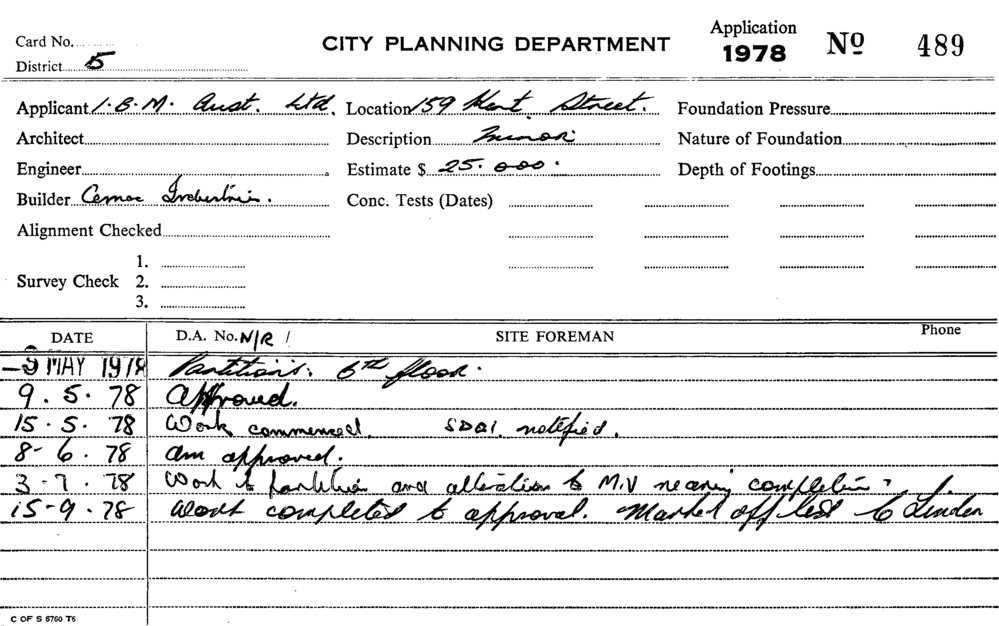 Card No.
CITY PLANNING DEPARTMENT
Application
1978 No 489
District 5
Applicant I.B.M. Aust. Ltd. Location 159 Kent Street. Foundation Pressure
Architect Description Minor Nature of Foundation
Engineer Estimate $ 25.000. Depth of Footings
Builder Cemac Industries. Conc. Tests (Dates)
Alignment Checked
Survey Check 1.
2.
3.
DATE D.A. No. N/R SITE FOREMAN Phone
MAY 1978 Partitions: 6th floor.
9.5.78 Approved.
15.5.78 Work commenced. notified.
8-6.78 Am approved.
3-7.78 Work to partition and alteration to M.V nearing completion.
15-9.78 Work completed to approval. Marked off
C OF S 6760 T6